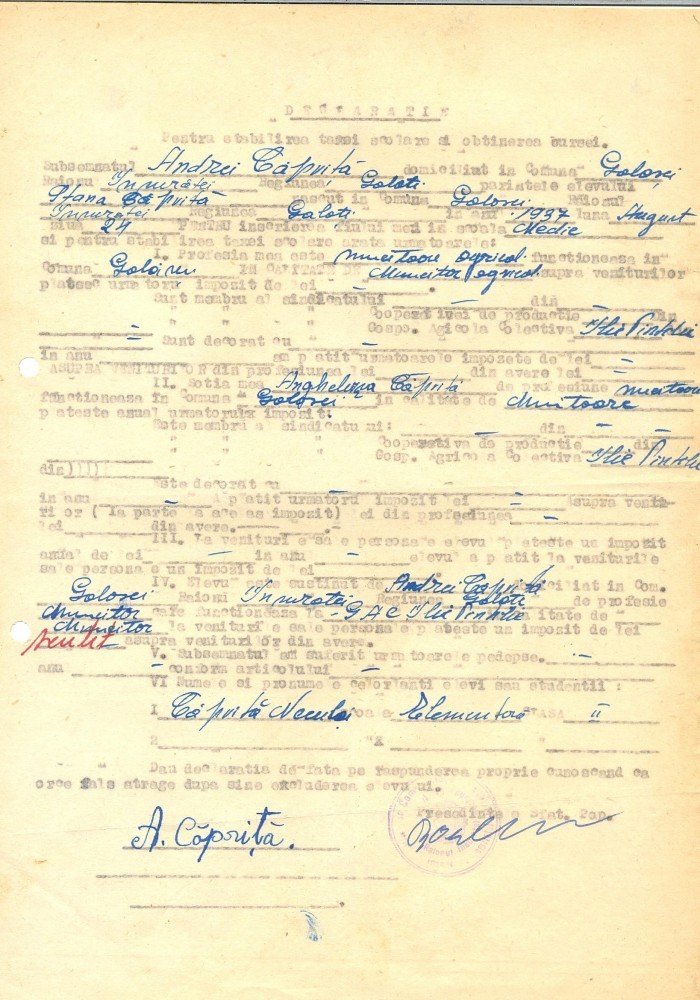 DECLARATIE
Pentru stabilirea taxei scolare si obtinerea bursei.
Subsemnatul Andrei Căpriță domiciliat in Comuna Golosei
Raionu Inpuratei Regiunea Galati parintele elevului
Stana Căpriță nascut in Comuna Golosei Raionul
Inpuratei Regiunea Galati in anu 1937 luna August
ziua 24 PENTRU inscrierea fiului meu in scoala Medie
si pentru stabilirea taxei scolare arata urmatoarele:
I. Profesia mea este muncitoare agricol functioneaza in
Comuna IN CALITATE DE Muncitor agricol asupra veniturilor
platesc urmatoru imposit de lei -
Sunt membru al sindicatului - din
" " " Cooperativei de productie - din
" " " Gosp. Agricola Colectiva Ilie Pintilie
- Sunt decorat cu -
in anu am platit urmatoarele impozete de lei -
ASUPRA VENITURILOR din profesiunea lei din avere lei -
II. Sotia mea Anghelina Căpriță de profesiune
functioneaza in comuna Golosei in calitate de
plateste anual urmatorulx imposit:
Este membru al sindicatu ui: - din -
" " " Cooperativa de productie - din
" " " Gosp. Agricola Co ectiva Ilie Pintilie
din)))))
Este decorat cu
in anu - a platit urmatoru imposit lei - (supra venitu-
ri or ( la parte a ace as imposit) lei din profesiunea -
lei din avere. -
III. La venituri e sa e persona e elevu plateste un imposit
anual de lei - in anu - elevu a platit la veniturile
sale persona e un imposit de lei
IV. Elevu este sustinut de Andrei Căpriță domiciliat in Com.
Golosei Raionu Inpuratei Regiunea Galati de profesie
Muncitor care functioneaza la G A C Ilie Pintilie calitate de
Muncitor la venituri e sale persona e plateste un imposit de lei
Scutit asupra venituri or din avere.
V. Subsemnatul am suferit urmatoarele pedepse. -
anu - conform articolului -
VI Numele si pronumele celorlanti elevi sau studentii :
I Căpriță Neculai Elementară CLASA II
2 "X "
Dau declaratia de fata pe raspunderea proprie cunoscand ca
orce fals atrage dupa sine excluderea elevu ui.
Presedinte e Sfat. Pop.
A. Căpriță.